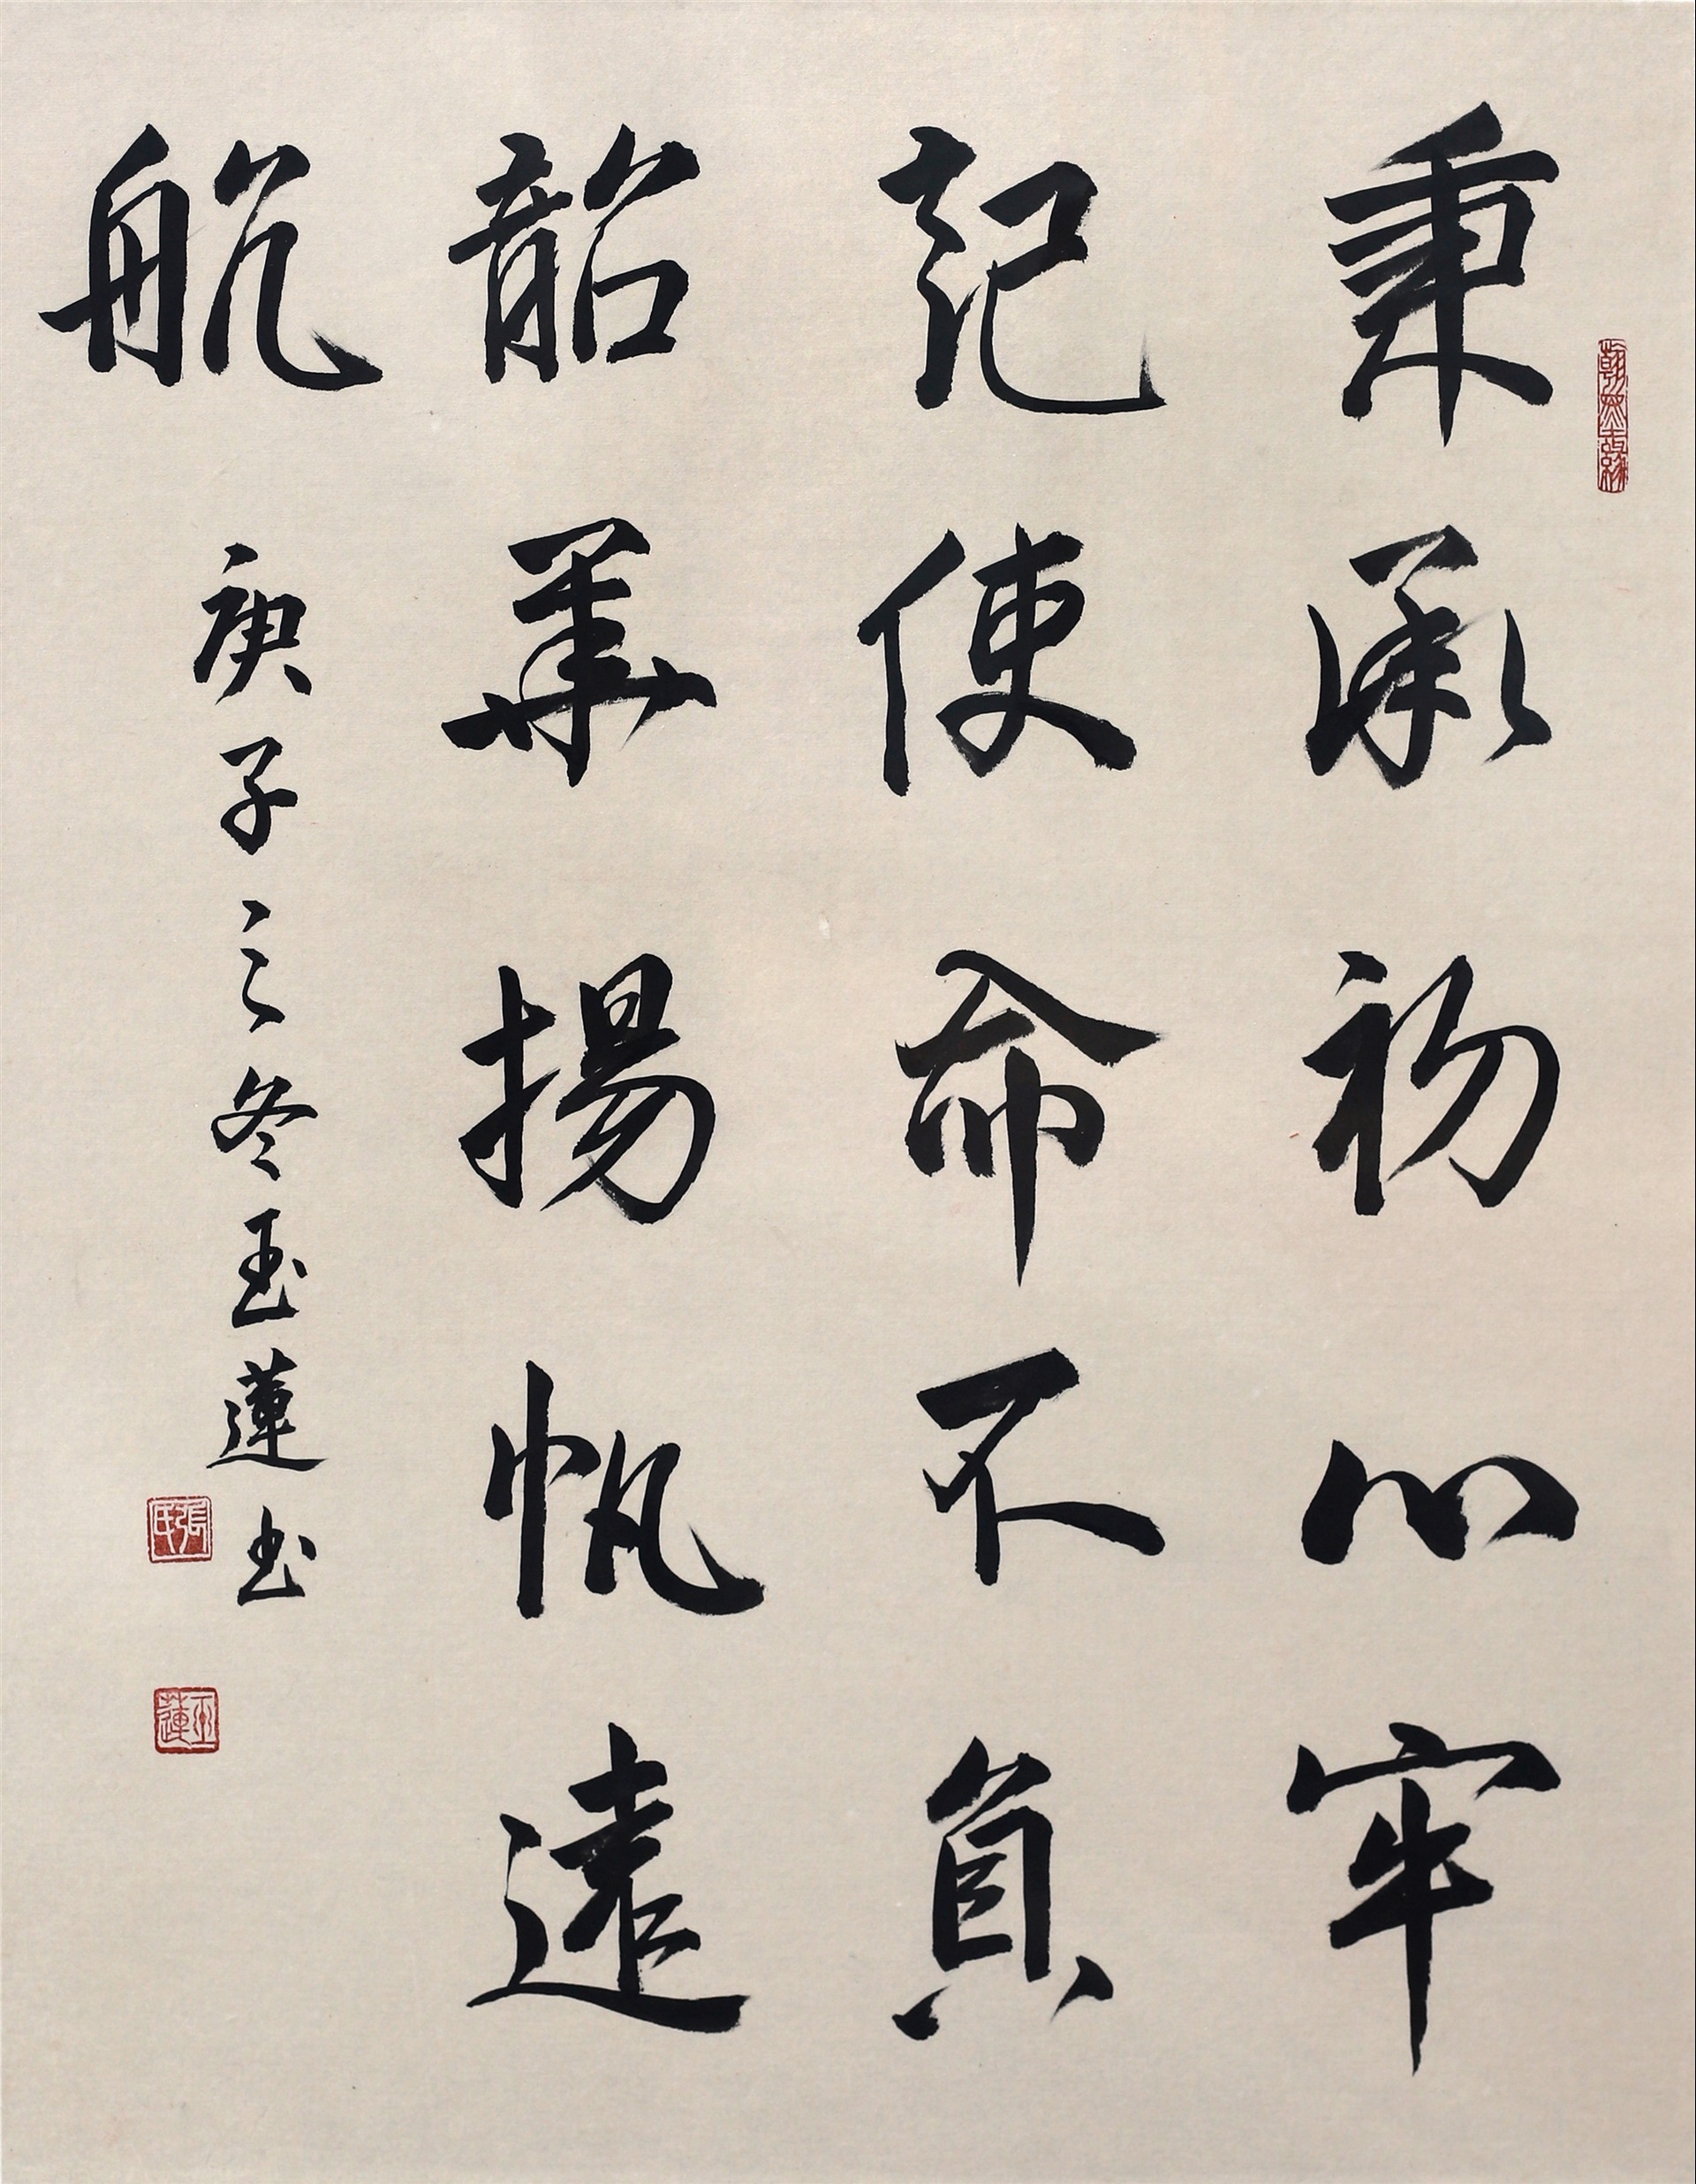 秉承初心牢
記使命不負
韶華揚帆遠
航
庚子之冬玉蓮书
張氏
玉蓮